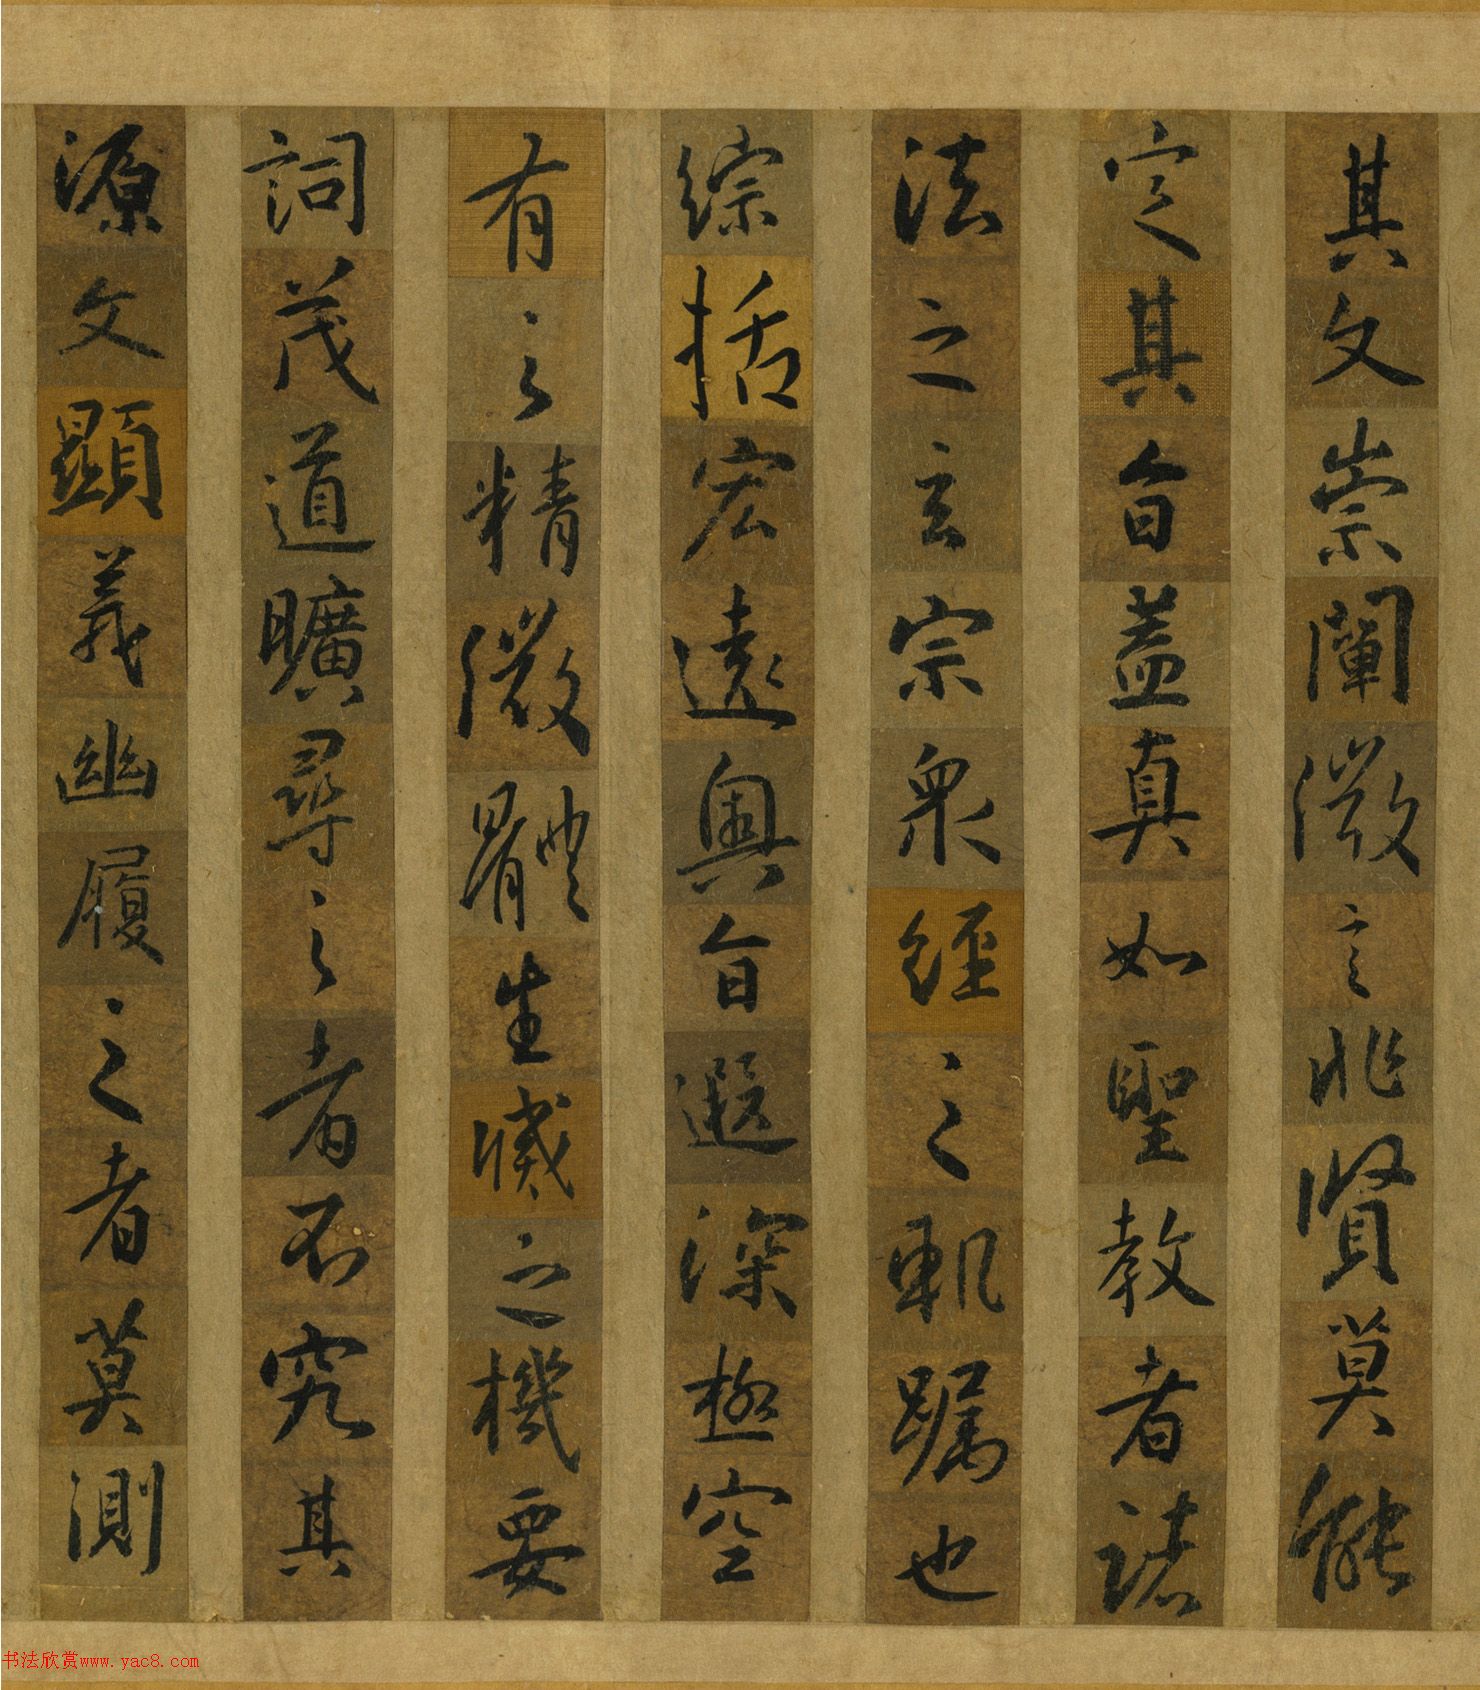 其文崇闡微言非賢莫能
定其旨蓋真如聖教者諸
法之玄宗衆經之軌躅也
綜括宏遠奧旨遐深極空
有之精微體生滅之機要
詞茂道曠尋之者不究其
源文顯義幽履之者莫測
书法欣赏www.yac8.com